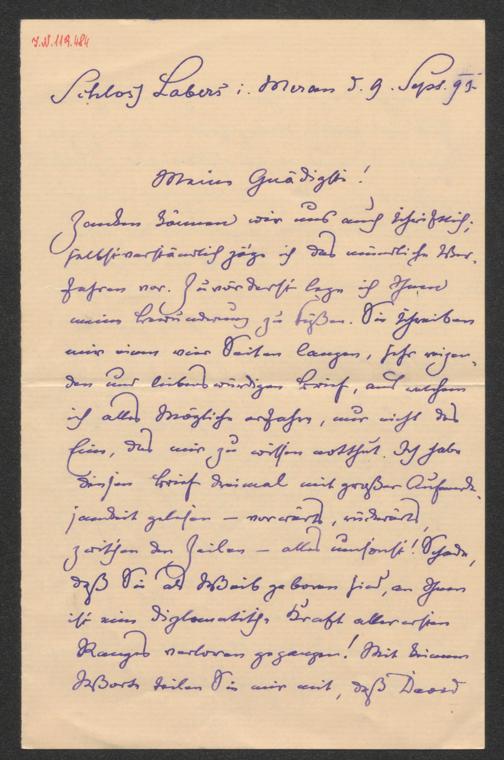 I.N. 119.484
Schloß Labers i. Meran d. 9. Sept. 95
Meine Gnädigste!
Zanken können wir uns auch schriftlich;
selbstverständlich zöge ich das mündliche Ver-
fahren vor. Zuvörderst lege ich Ihnen
meine Bewunderung zu Füßen. Sie schreiben
mir einen vier Seiten langen, sehr reizen-
den und liebenswürdigen Brief, aus welchem
ich alles Mögliche erfahre, nur nicht das
Eine, das mir zu wissen notthut. Ich habe
diesen Brief dreimal mit großer Aufmerk-
samkeit gelesen – vorwärts, rückwärts,
zwischen den Zeilen – alles umsonst! Schade,
daß Sie als Weib geboren sind, an Ihnen
ist eine diplomatische Kraft allerersten
Ranges verloren gegangen! Mit keinem
Worte teilen Sie mir mit, daß David